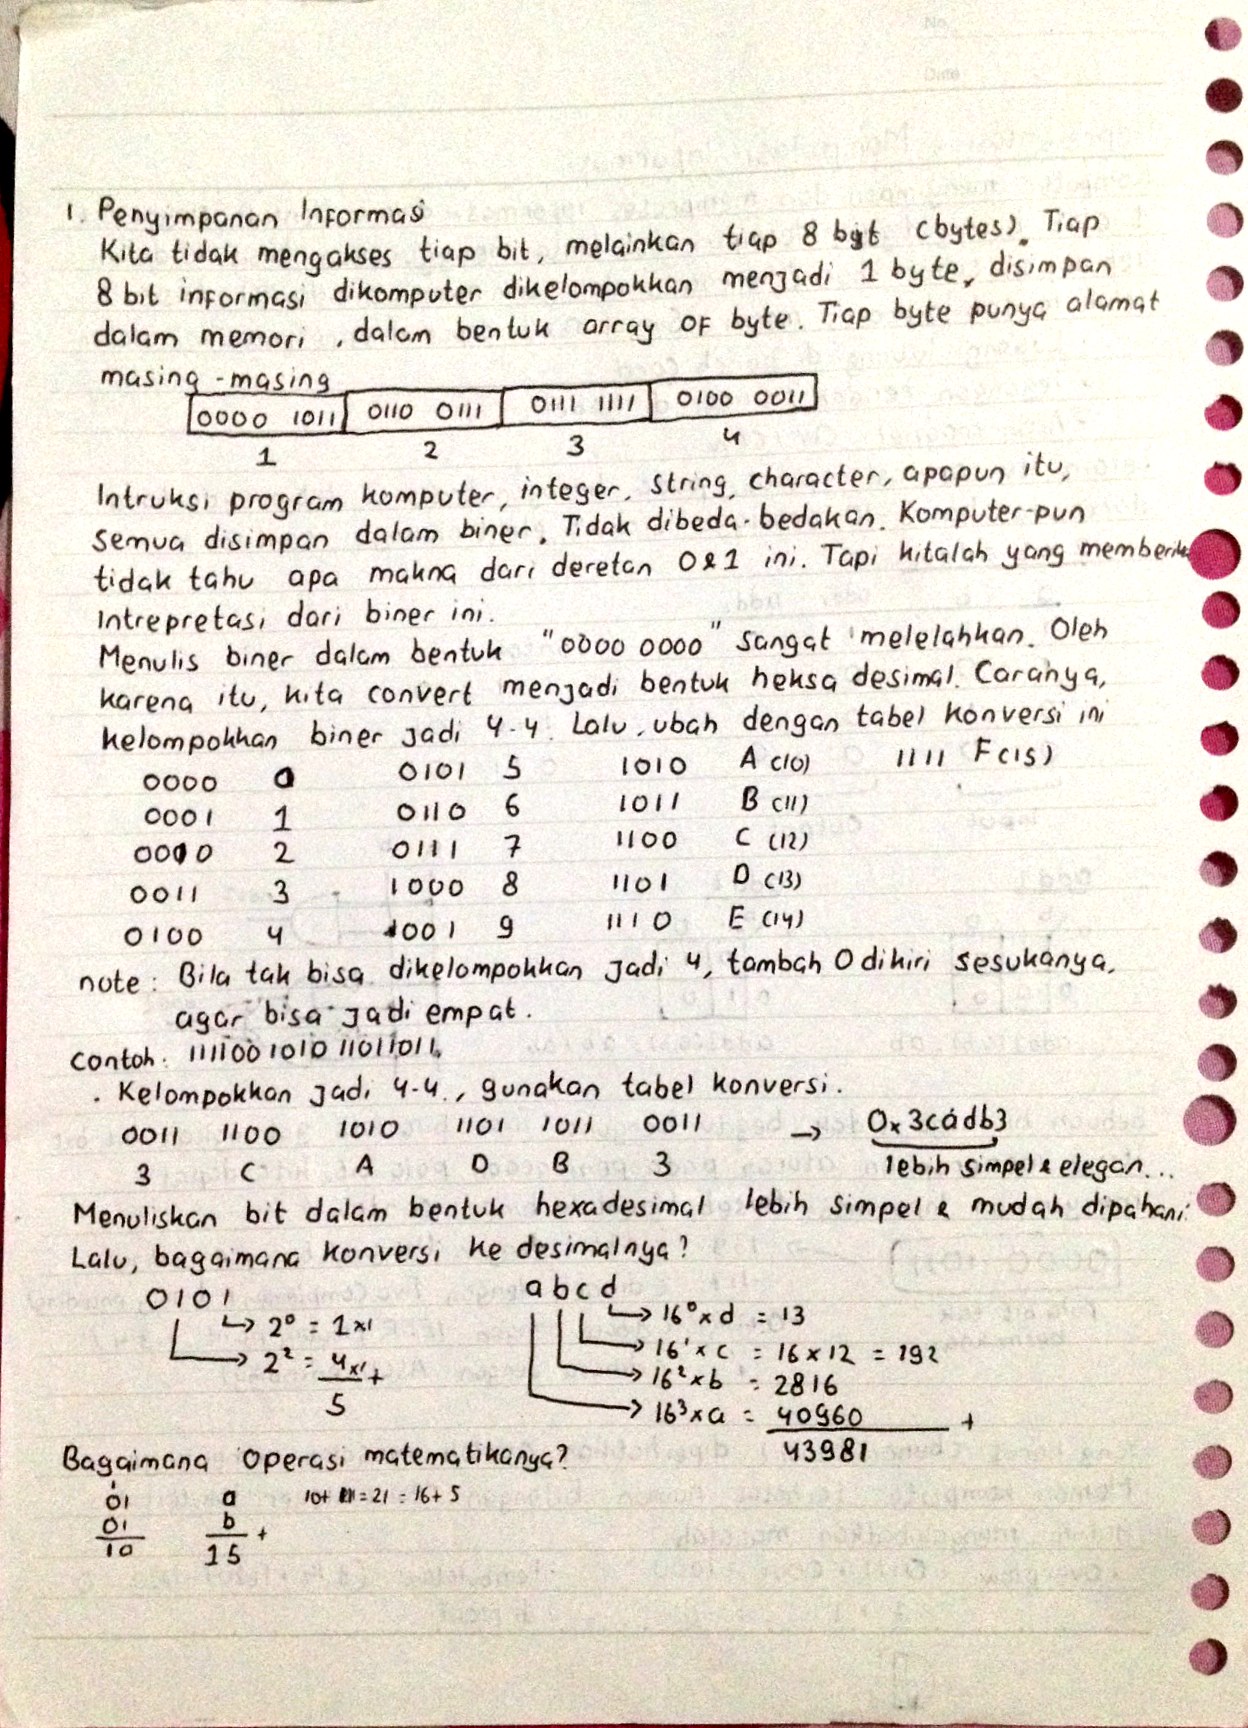 1. Penyimpanan Informasi
Kita tidak mengakses tiap bit, melainkan tiap 8 bit (bytes). Tiap
8 bit informasi dikomputer dikelompokkan menjadi 1 byte, disimpan
dalam memori, dalam bentuk array of byte. Tiap byte punya alamat
masing-masing
0000 1011 0110 0111 0111 1111 0100 0011
1 2 3 4
Intruksi program komputer, integer, string, character, apapun itu,
semua disimpan dalam biner. Tidak dibeda-bedakan. Komputer-pun
tidak tahu apa makna dari deretan 0&1 ini. Tapi kitalah yang memberik
Intrepretasi dari biner ini.
Menulis biner dalam bentuk "0000 0000" sangat melelahkan. Oleh
karena itu, kita convert menjadi bentuk heksa desimal. Caranya,
kelompokkan biner jadi 4-4. Lalu, ubah dengan tabel konversi ini
0000 0 0101 5 1010 A (10) 1111 F (15)
0001 1 0110 6 1011 B (11)
0010 2 0111 7 1100 C (12)
0011 3 1000 8 1101 D (13)
0100 4 1001 9 1110 E (14)
note: Bila tak bisa dikelompokkan jadi 4, tambah 0 dikiri sesukanya,
agar bisa jadi empat.
Contoh: 1111001010 11011011
. Kelompokkan jadi 4-4, gunakan tabel konversi.
0011 1100 1010 1101 1011 0011 → 0x3cadb3
3 C A D B 3 lebih simpel & elegan...
Menuliskan bit dalam bentuk hexadesimal lebih simpel & mudah dipahani
Lalu, bagaimana konversi ke desimalnya?
0101 abcd
→ 2⁰ = 1x1 → 16⁰ x d = 13
→ 2² = 4x1 + → 16¹ x c = 16 x 12 = 192
5 → 16² x b = 2816
→ 16³ x a = 40960 +
43981
Bagaimana operasi matematikanya?
1
01 a 10+11=21=16+5
01 b +
10 15